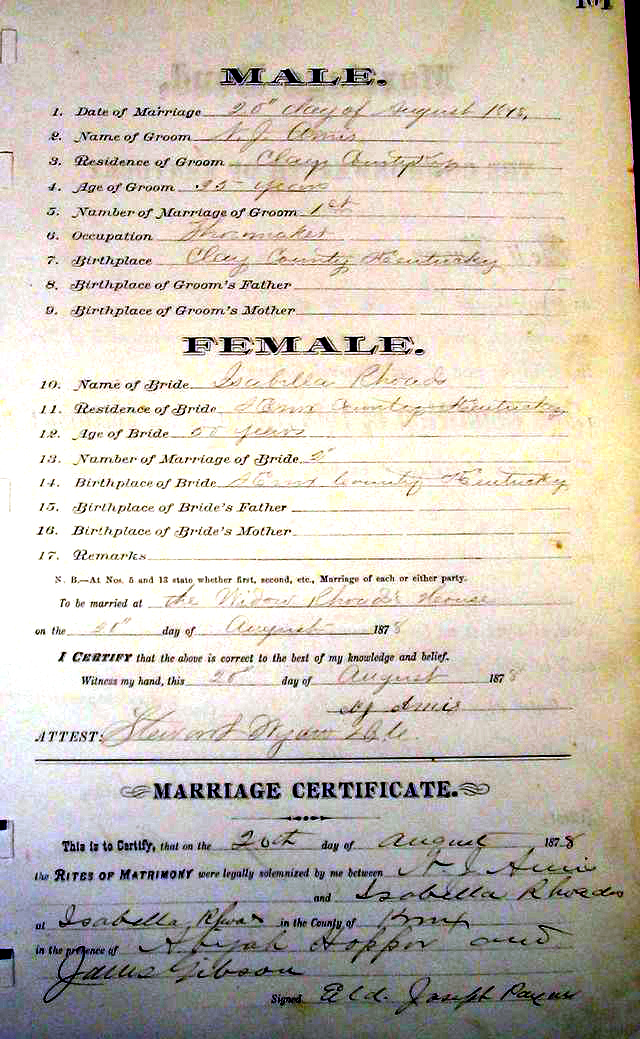 MALE.
1. Date of Marriage 20" day of August 1878,
2. Name of Groom N. J. Amis
3. Residence of Groom Clay County Ky
4. Age of Groom 35 years
5. Number of Marriage of Groom 1st
6. Occupation Shoemaker
7. Birthplace Clay County Kentucky
8. Birthplace of Groom's Father
9. Birthplace of Groom's Mother
FEMALE.
10. Name of Bride Isabella Rhoads
11. Residence of Bride Knox County Kentucky
12. Age of Bride years
13. Number of Marriage of Bride
14. Birthplace of Bride Knox County Kentucky
15. Birthplace of Bride's Father
16. Birthplace of Bride's Mother
17. Remarks
N. B.—At Nos. 5 and 13 state whether first, second, etc., Marriage of each or either party.
To be married at the Widow Rhoads House
on the 20" day of August 1878
I CERTIFY that the above is correct to the best of my knowledge and belief.
Witness my hand, this 20" day of August 1878
Amis
ATTEST:
MARRIAGE CERTIFICATE.
This is to Certify, that on the 20th day of August 1878
the RITES OF MATRIMONY were legally solemnized by me between N. J. Amis
and Isabella Rhoads
at Isabella Rhoads in the County of Knox
in the presence of Hopper and
James Gibson
Signed Eld. Joseph